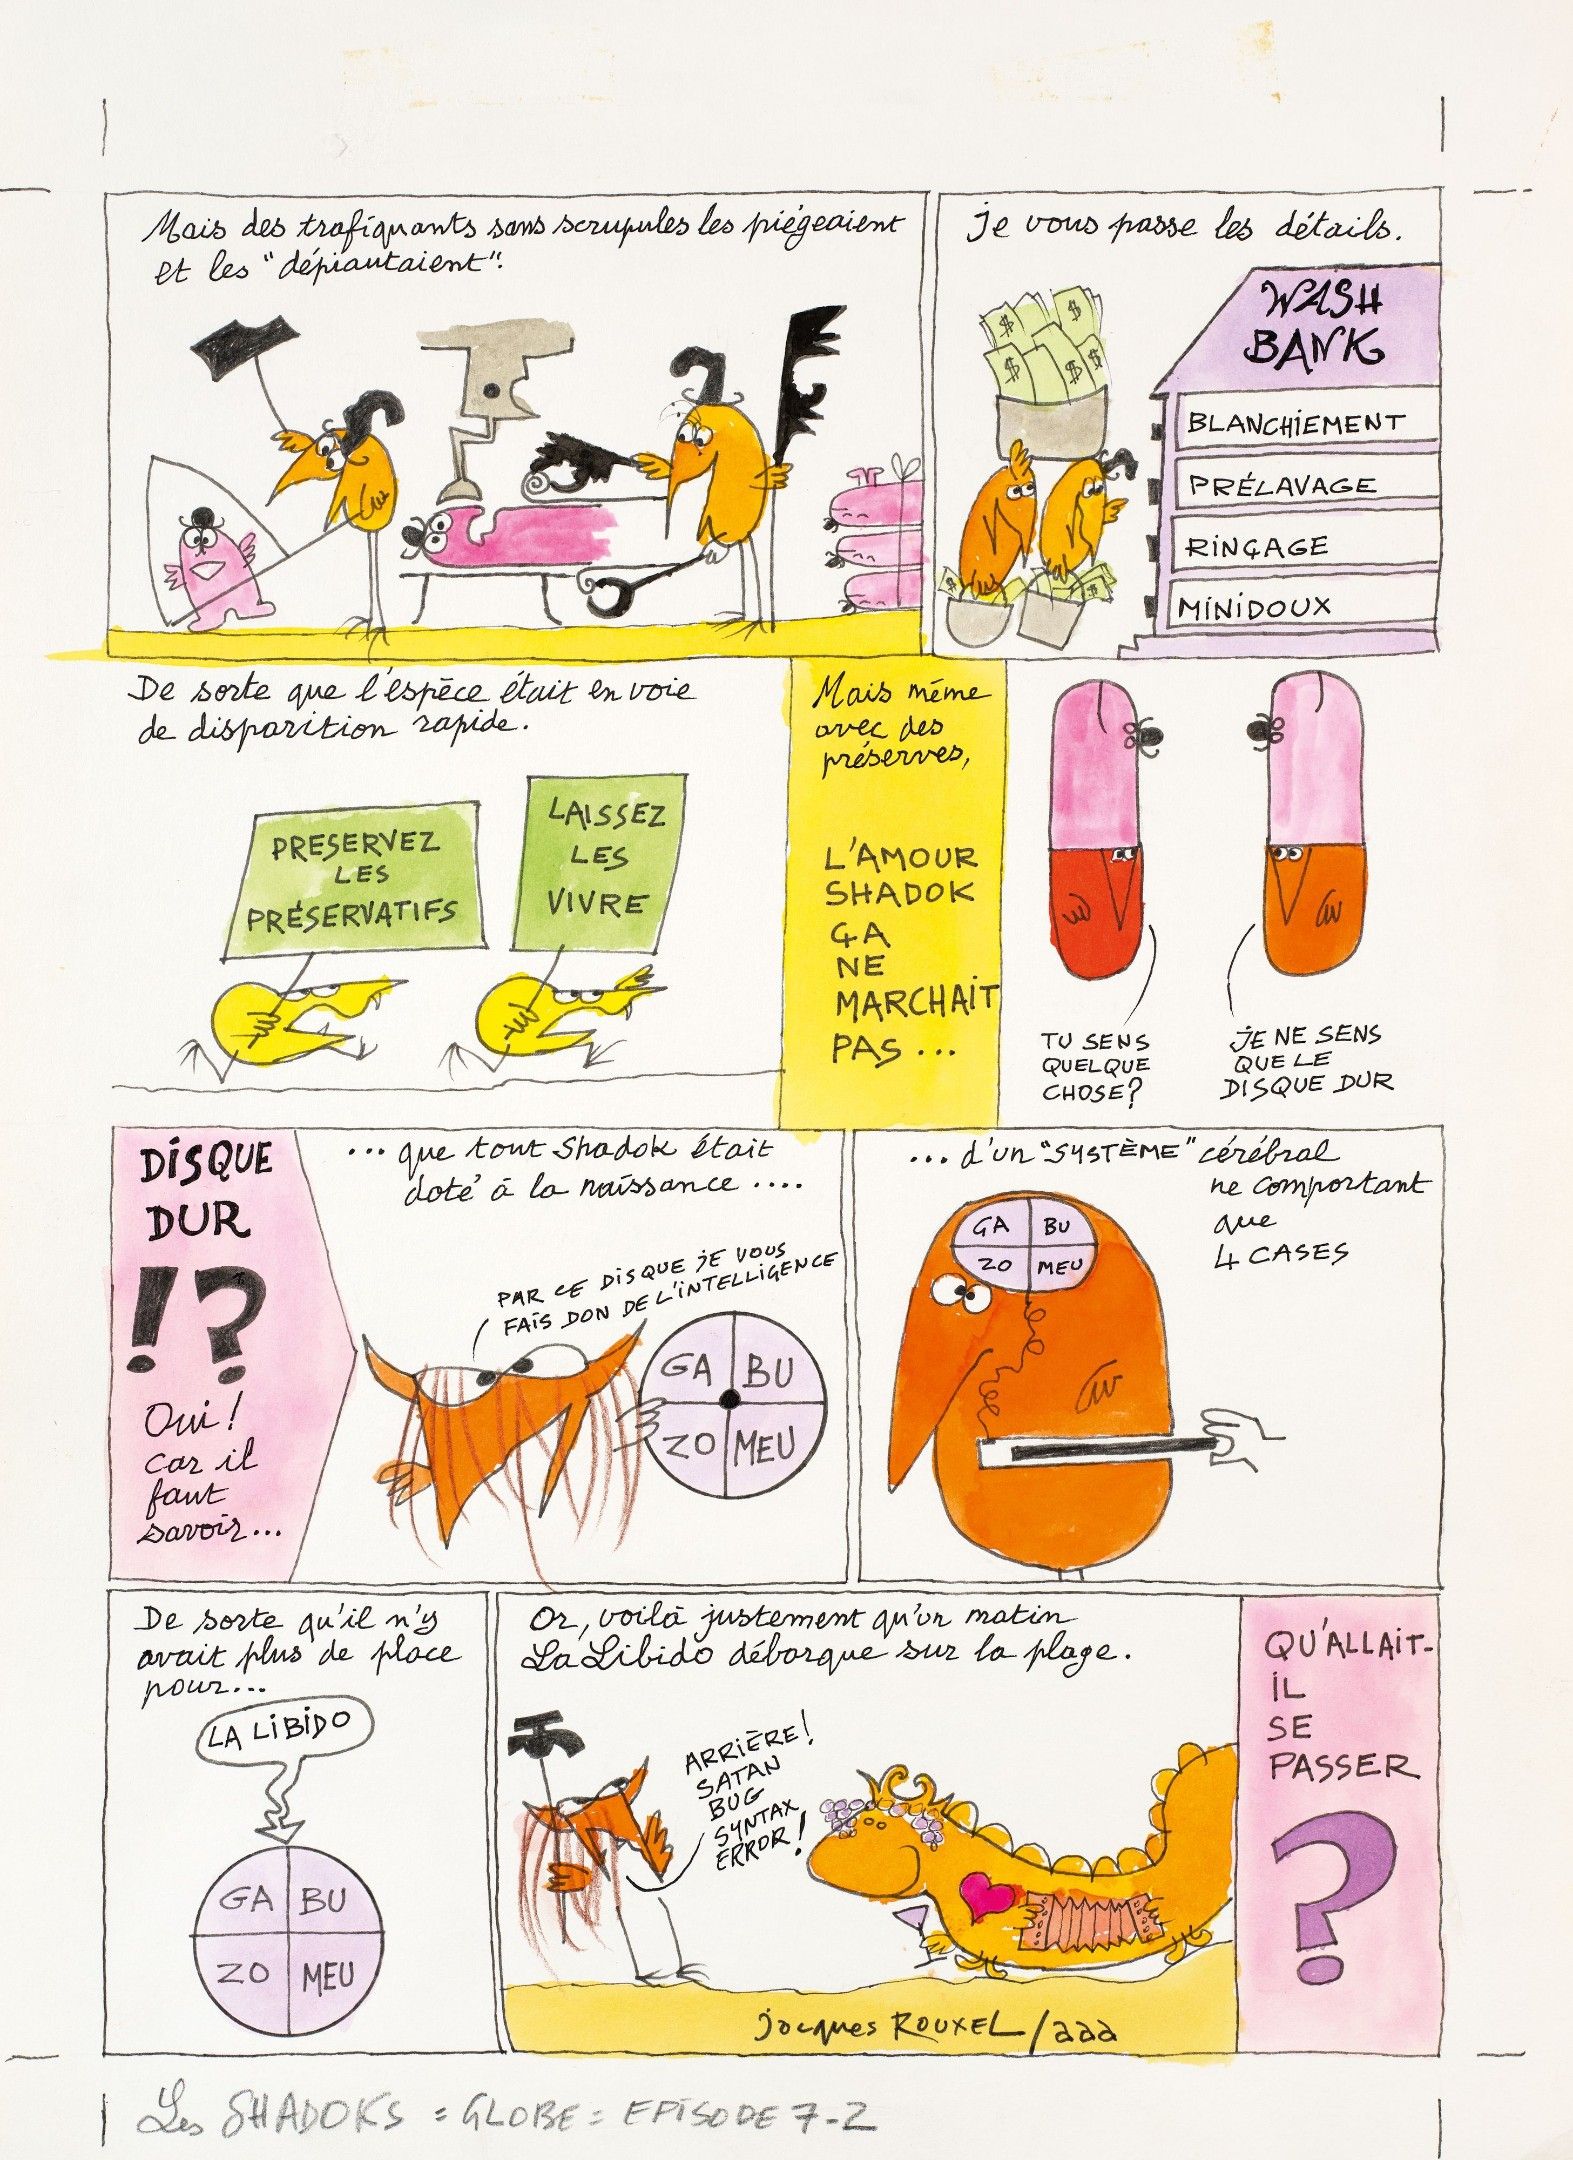 Mais des trafiquants sans scrupules les piégeaient
et les "dépiautaient".
je vous passe les détails.
$ $
$ $ $
WASH
BANK
BLANCHIEMENT
PRÉLAVAGE
RINÇAGE
MINIDOUX
De sorte que l'espèce était en voie
de disparition rapide.
PRESERVEZ
LES
PRÉSERVATIFS
LAISSEZ
LES
VIVRE
Mais même
avec des
préserves,
L'AMOUR
SHADOK
ÇA
NE
MARCHAIT
PAS...
TU SENS
QUELQUE
CHOSE?
JE NE SENS
QUE LE
DISQUE DUR
DISQUE
DUR
!?
Oui!
car il
faut
savoir...
... que tout Shadok était
doté à la naissance ....
PAR CE DISQUE JE VOUS
FAIS DON DE L'INTELLIGENCE
GA BU
ZO MEU
... d'un "SYSTÈME" cérébral
ne comportant
que
4 CASES
GA BU
ZO MEU
De sorte qu'il n'y
avait plus de place
pour...
LA LIBIDO
GA BU
ZO MEU
Or, voilà justement qu'un matin
La Libido débarque sur la plage.
ARRIÈRE!
SATAN
BUG
SYNTAX
ERROR!
jacques ROUXEL/aaa
QU'ALLAIT-
IL
SE
PASSER
?
Les SHADOKS = GLOBE = EPISODE 7-2